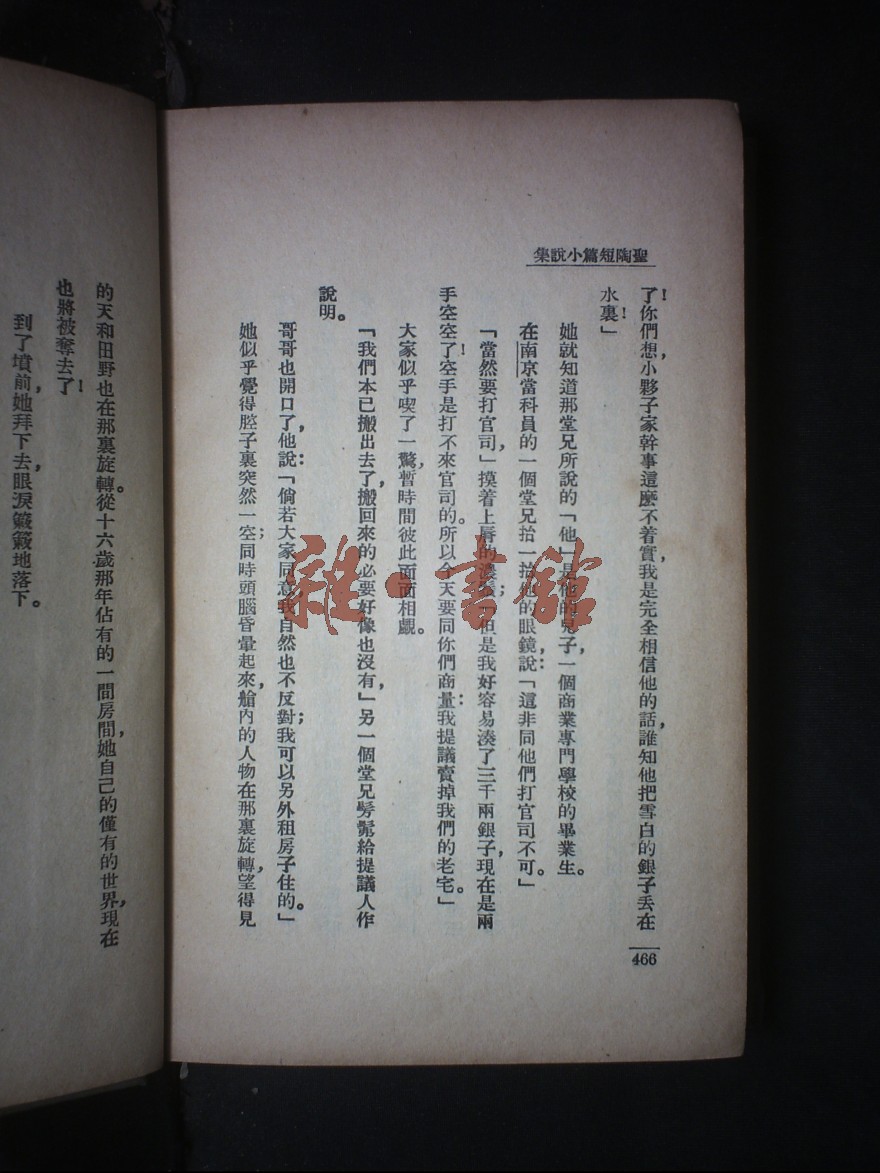 聖陶短篇小說集
了！你們想，小夥子家幹事這麼不着實，我是完全相信他的話，誰知他把雪白的銀子丟在
水裏！」
她就知道那堂兄所說的「他」是他的兒子，一個商業專門學校的畢業生。
在南京當科員的一個堂兄抬一抬他的眼鏡，說：「這非同他們打官司不可。」
「當然要打官司，」摸着上脣的濃髭；「但是我好容易湊了三千兩銀子，現在是兩
手空空了！空手是打不來官司的。所以今天要同你們商量：我提議賣掉我們的老宅。」
大家似乎喫了一驚，暫時間彼此面面相覷。
「我們本已搬出去了，搬回來的必要好像也沒有，」另一個堂兄髣髴給提議人作
說明。
哥哥也開口了，他說：「倘若大家同意，我自然也不反對；我可以另外租房子住的。」
她似乎覺得腔子裏突然一空；同時頭腦昏暈起來，艙內的人物在那裏旋轉，望得見
466
的天和田野也在那裏旋轉。從十六歲那年佔有的一間房間，她自己的僅有的世界，現在
也將被奪去了！
到了墳前，她拜下去，眼淚簌簌地落下。
雜·書館